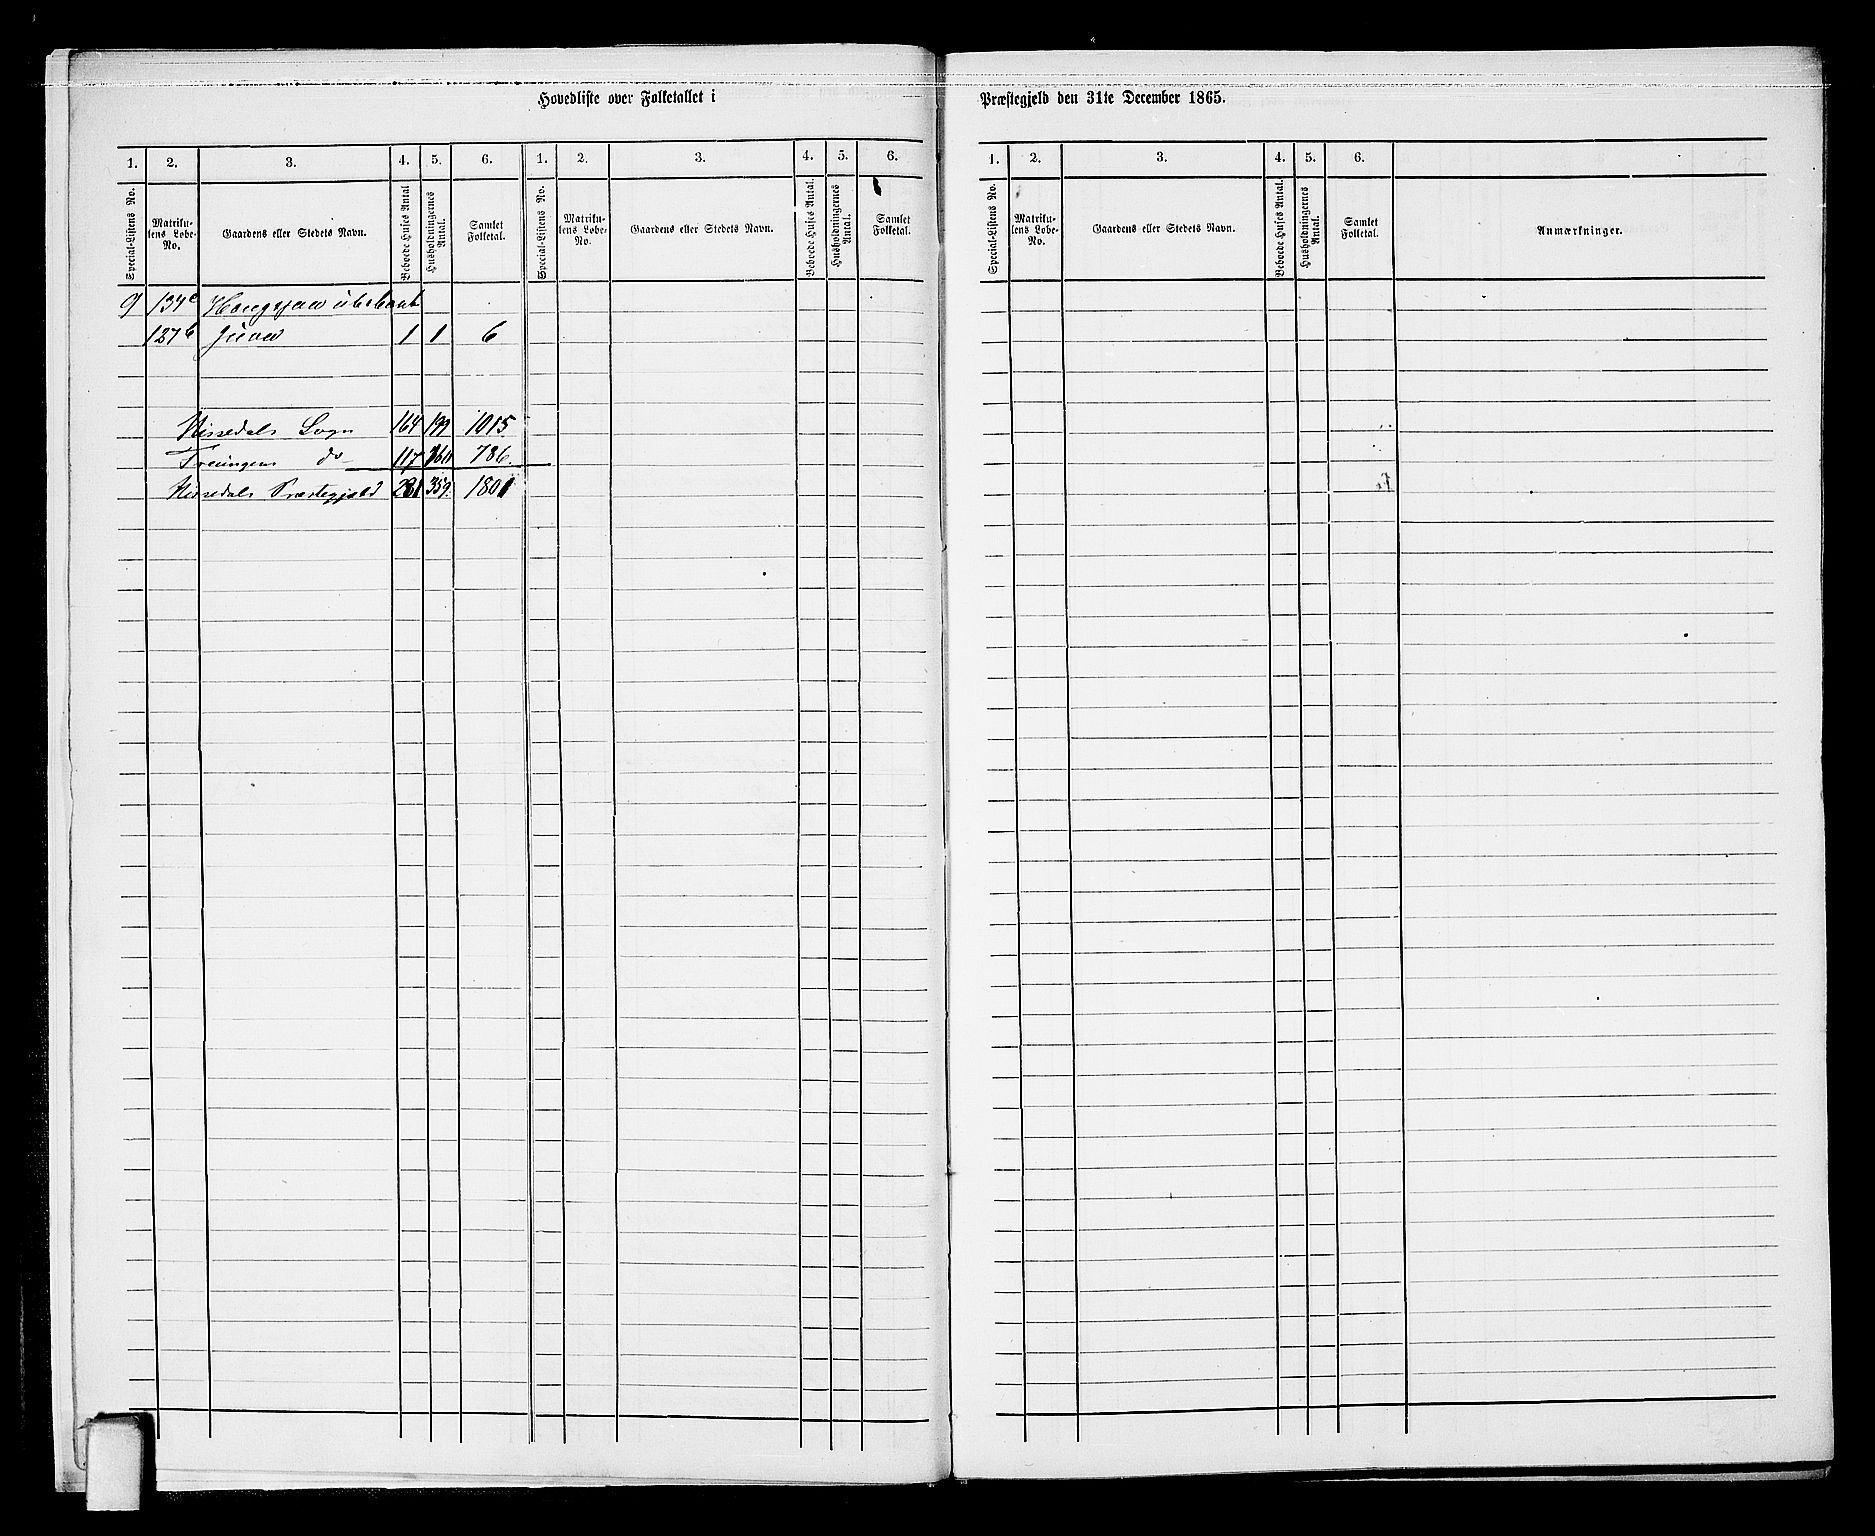 Hovedliste over Folketallet i Præstegjeld den 31te December 1865.
1. 2. 3. 4. 5. 6. 1. 2. 3. 4. 5. 6. 1. 2. 3. 4. 5. 6.
Special-Listens No. Matrikulens Løbe-No. Gaardens eller Stedets Navn. Beboede Huses Antal Husholdningernes Antal. Samlet Folketal. Special-Listens No. Matrikulens Løbe-No. Gaardens eller Stedets Navn. Beboede Huses Antal. Husholdningernes Antal. Samlet Folketal. Special-Listens No. Matrikulens Løbe-No. Gaardens eller Stedets Navn. Beboede Huses Antal. Husholdningernes Antal. Samlet Folketal. Anmærkninger.
9 134c ubeboet
127b Juva 1 1 6
Nissedals Sogn 164 199 1015
Treungens do 117 160 786
Nissedals Præstegjeld 281 359 1801